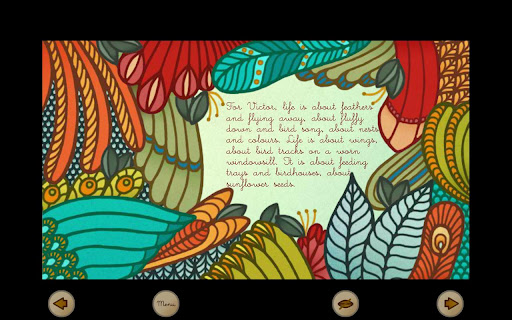 For Victor, life is about feathers
and flying away, about fluffy
down and bird song, about nests
and colours. Life is about wings,
about bird tracks on a worn
windowsill. It is about feeding
trays and birdhouses, about
sunflower seeds.
Menu